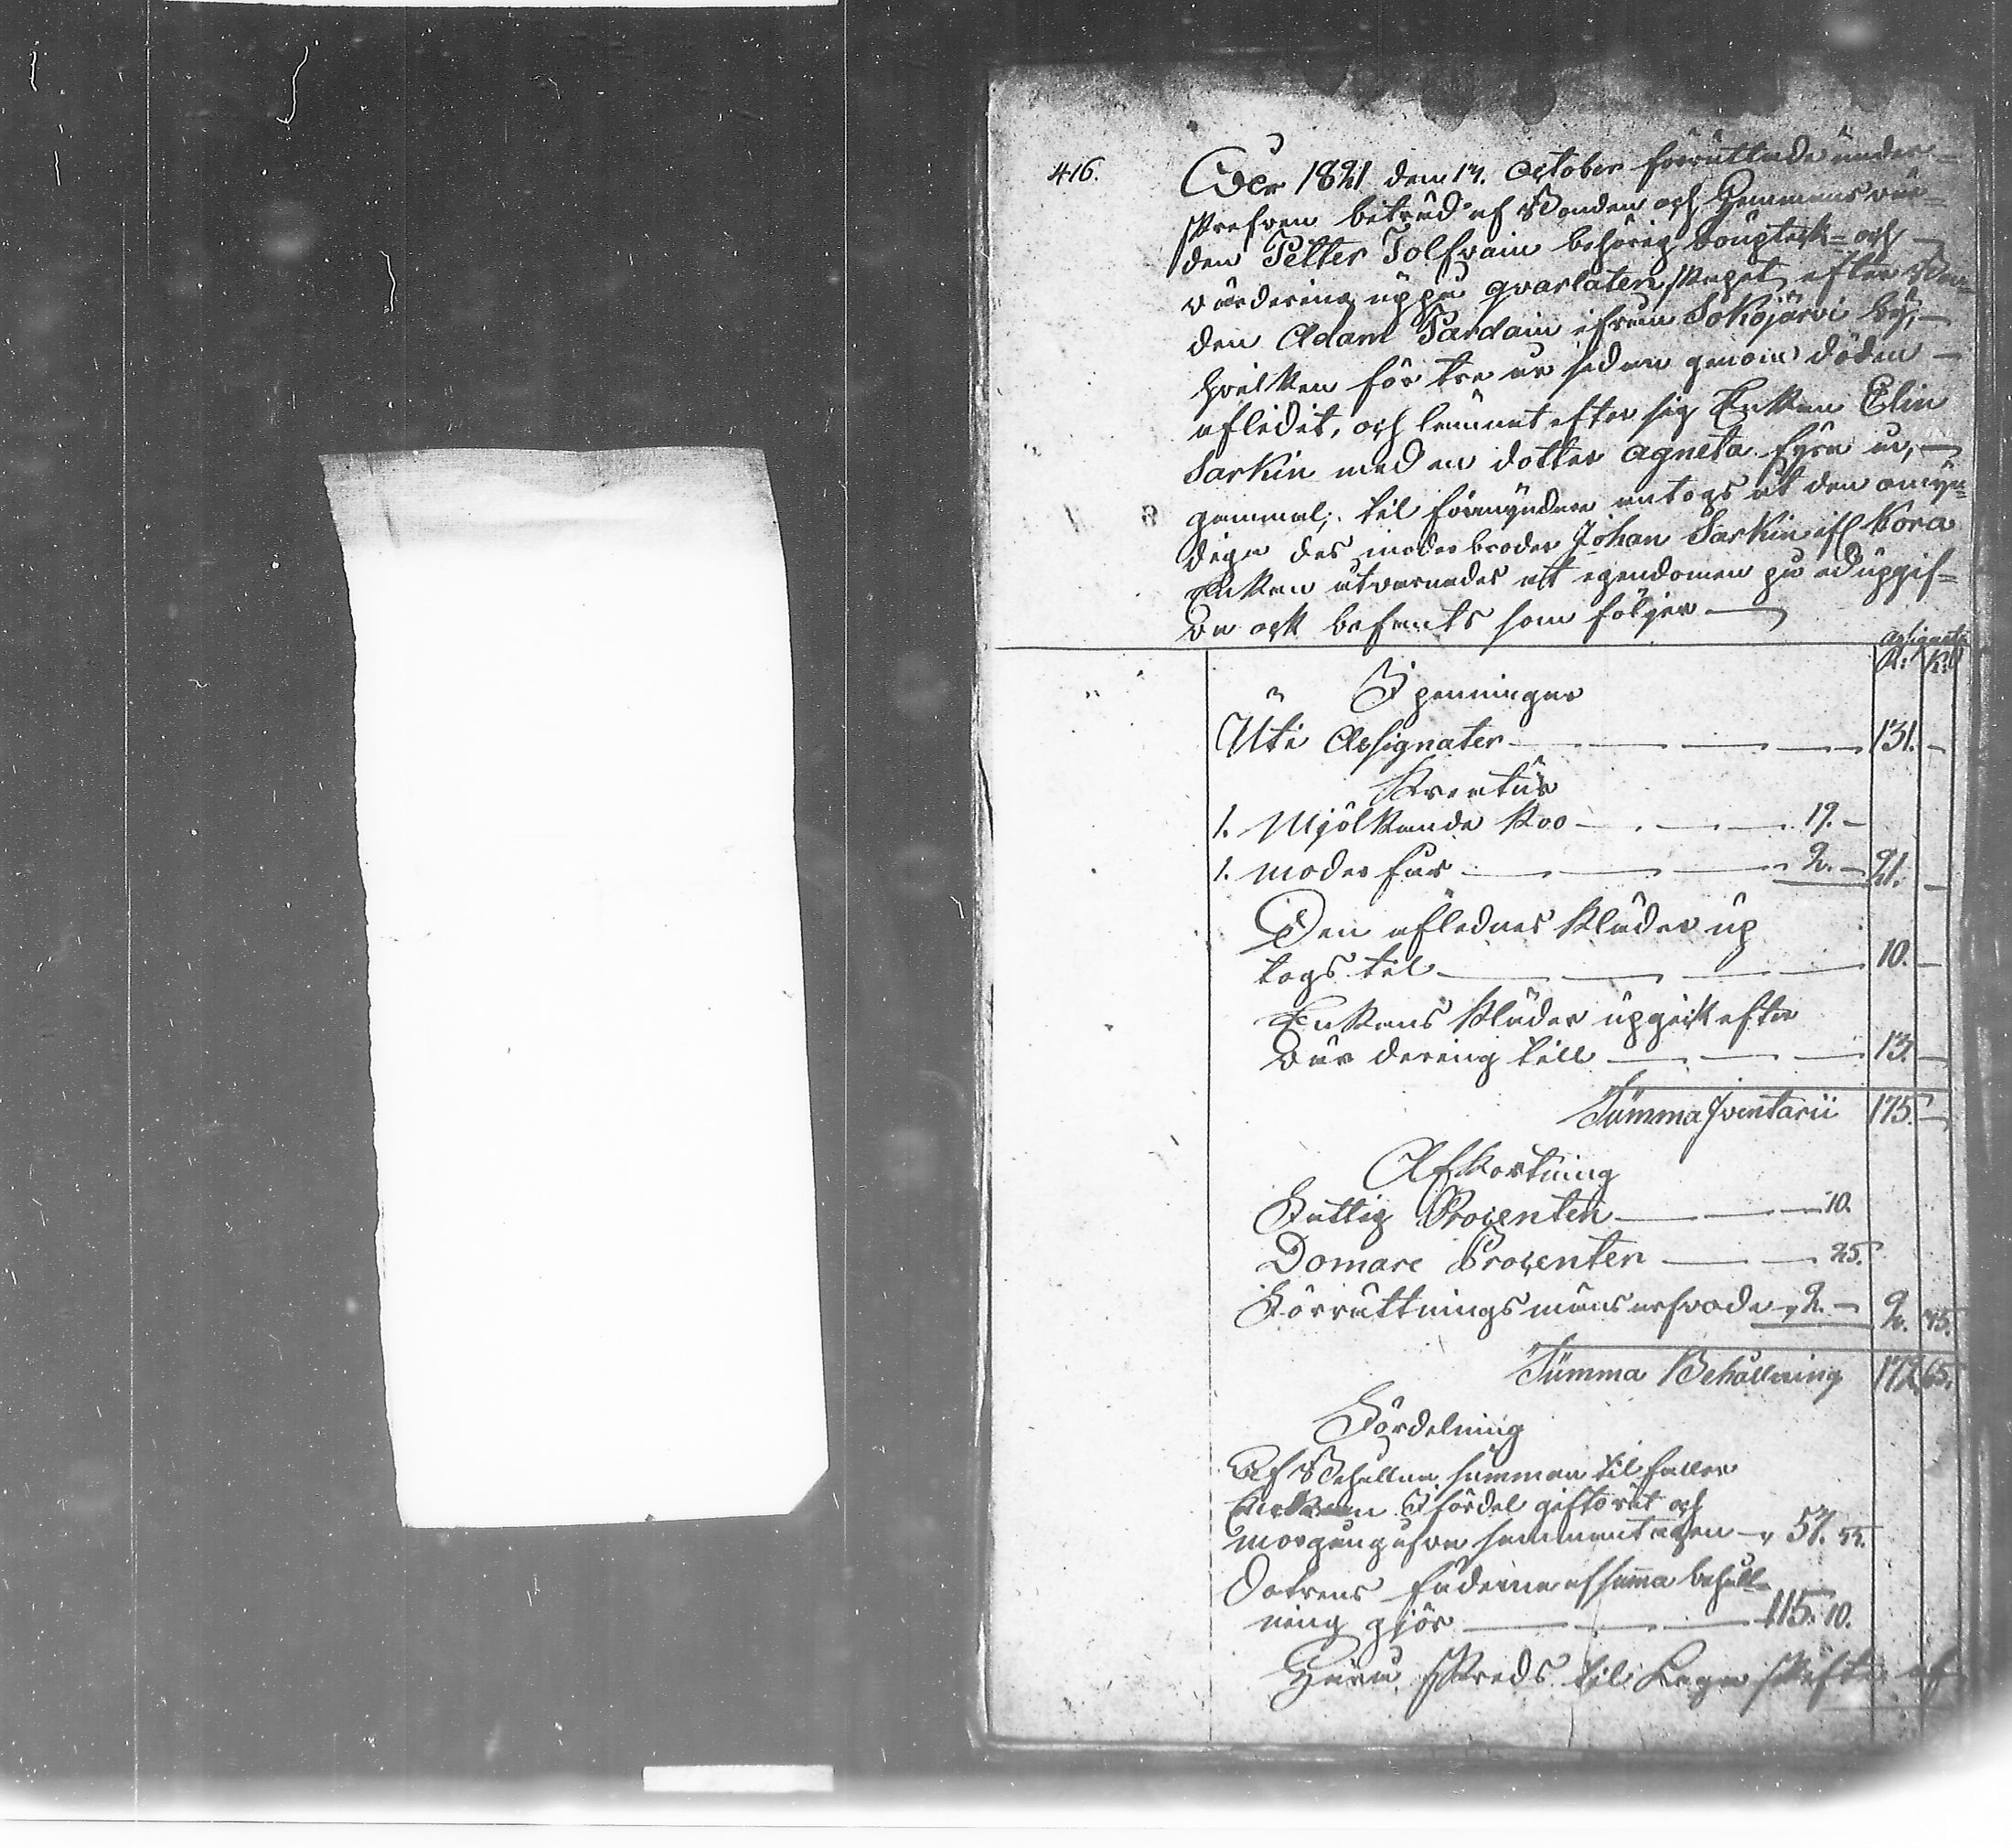 416.
Åer 1821 den 17. October förrättade under-
skrefven biträd af Bonden och Hemmans vär-
den Petter Tolfvain behörig bouptek- och
värdering uppå qvarlatenskapet efter Bon-
den Adam Pardain ifrån Sokojärvi by,
hvilken för tre år sedan genom döden
aflidit, och lämnat efter sig Enkan Elin
Sarkin med en dotter Agneta fyra år,
gammal; til förmyndare antogs åt den omyn-
diga des moderbroder Johan Sarkin if
Enkan utvarnades att egendomen på ed uppgif-
va ock befants som följer
Assignater
R: K:
I penningar
Uti Assignater 131. -
Kreatur
1. Mjölkande Koo 19. -
1. moder får 2. - 21. -
Den aflednes kläder up
togs til 10. -
Enkans kläder upgick efter
vär dering till 13. -
Summa Iventarii 175. -
Afkortning
Fattig Procenten 10.
Domare Procenten 25.
Förrättningsmans arfvode 2. - 2. 35.
Summa Behållning 172 65.
Fördelning
Af Behållna summan til faller
Enkan I fördel giftorät och
morgungåfva sammantagen 57. 55.
Dotrens fäderne af summa behåll-
ning gjör 115. 10.
Huru skreds til Laga skifte af